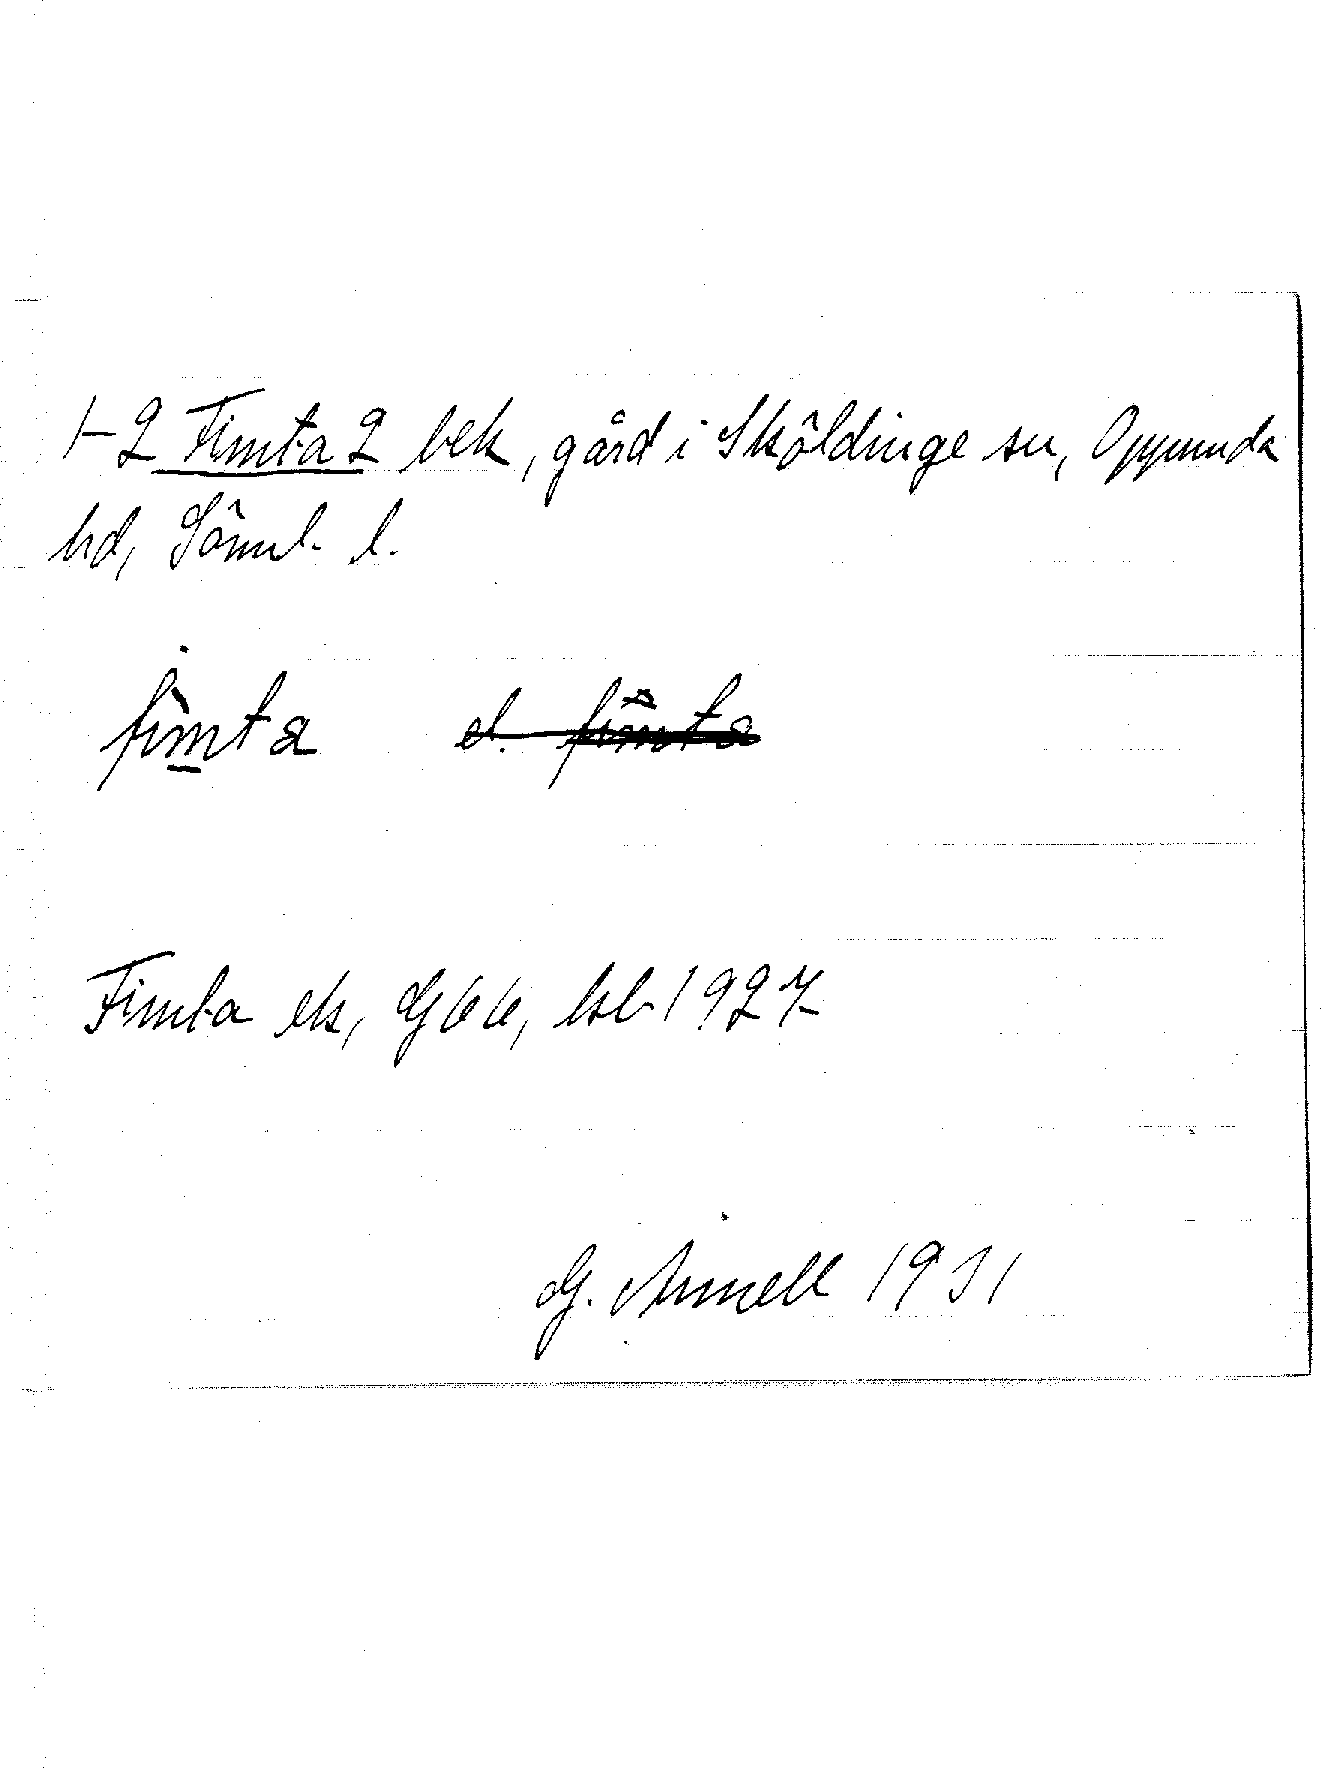 1-2 Fimta 2 bek, gård i Sköldinge sn, Oppunda
hd, Söml. l.
fìmta el. fimta
Fimta ek, GG6, bl. 1927
G. Arnell 1931